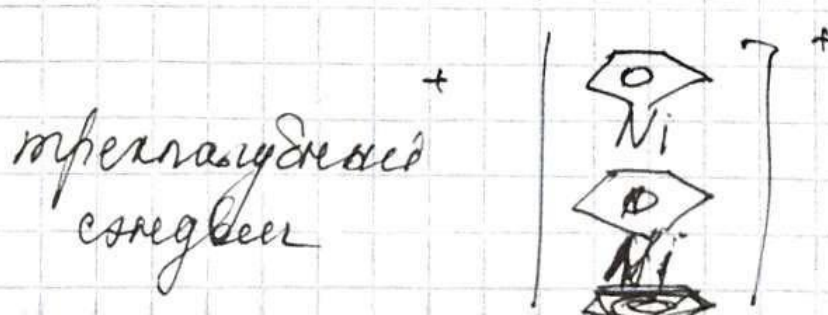 +
+
Ni
трехпалубный
сэндвич
Ni